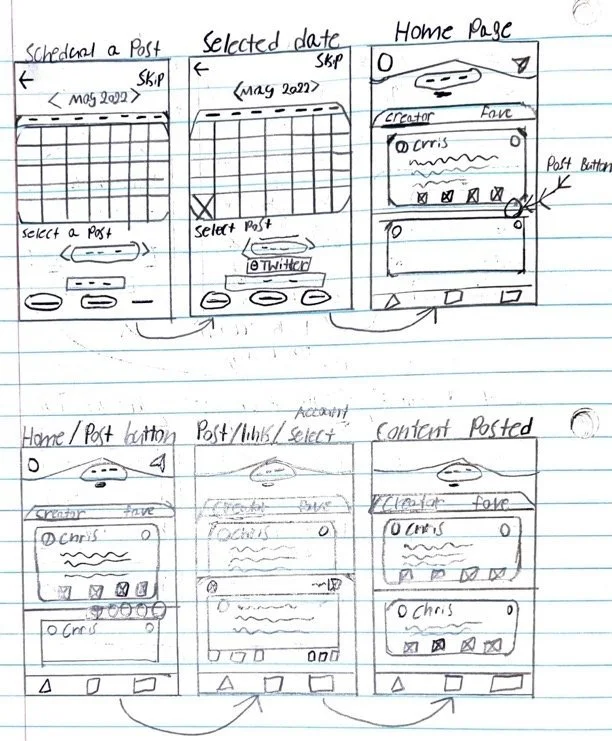 Schedual a Post
Selected date
Home Page
SKIP
< May 2022 >
Select a Post
SKIP
<May 2022>
Select Post
Twitter
Creator Fave
Chris
Post Button
Home / Post button
Post/links/select
Account
Content Posted
Creator fave
Chris
Chris
Creator Fave
Chris
Creator fave
Chris
Chris